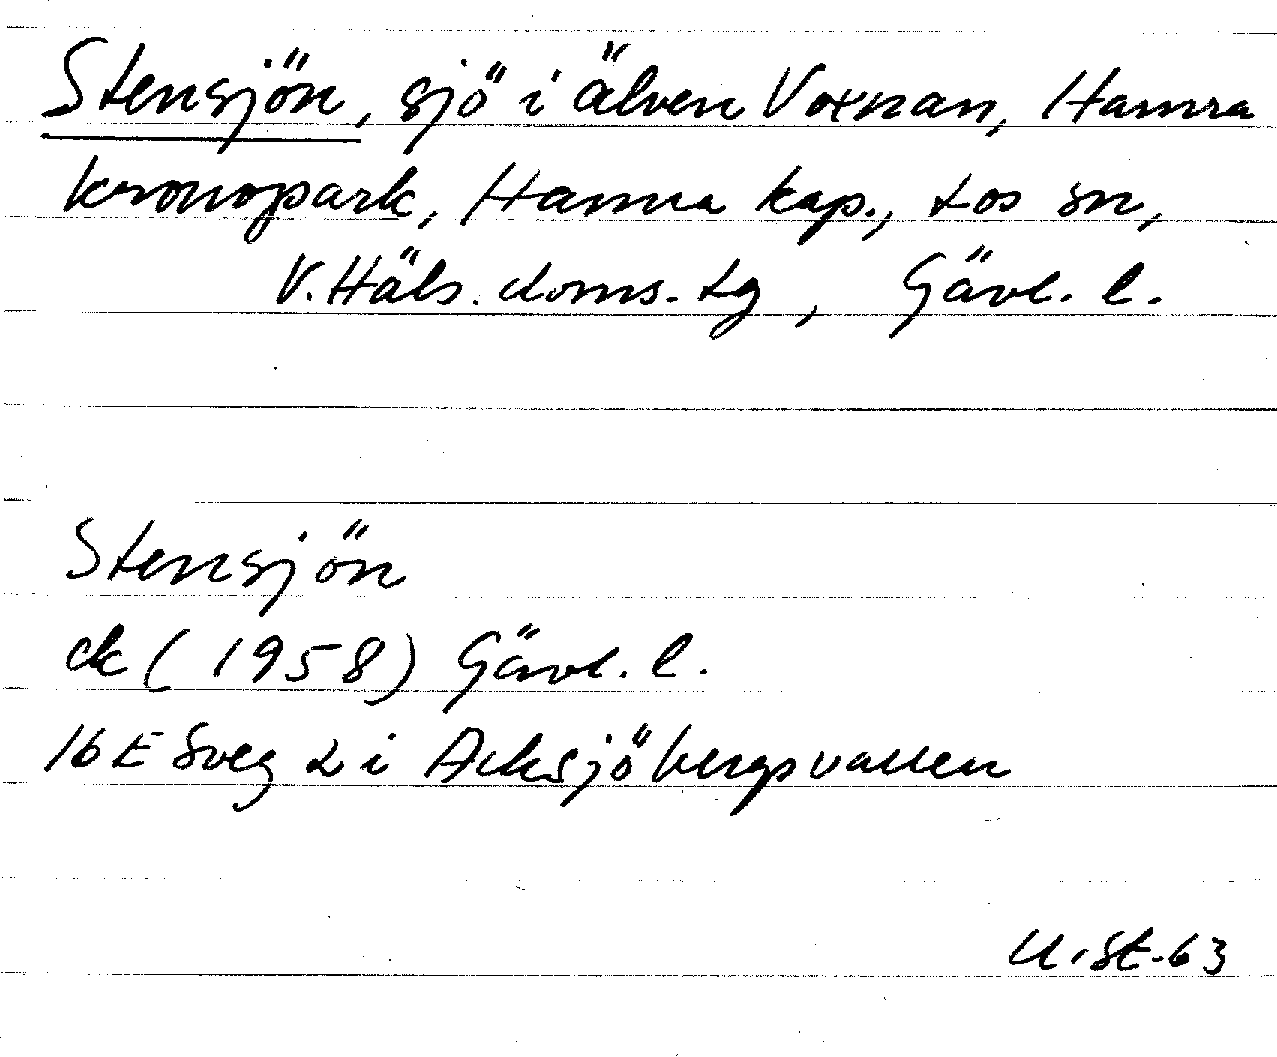 Stensjön, sjö i älven Voxnan, Hamra
kronopark, Hamra kap., Los sn,
V. Häls. doms. tg, Gävl. l.
Stensjön
ek (1958) Gävl. l.
16 E Sveg 2 i Acksjöbergsvallen
U. St. 63